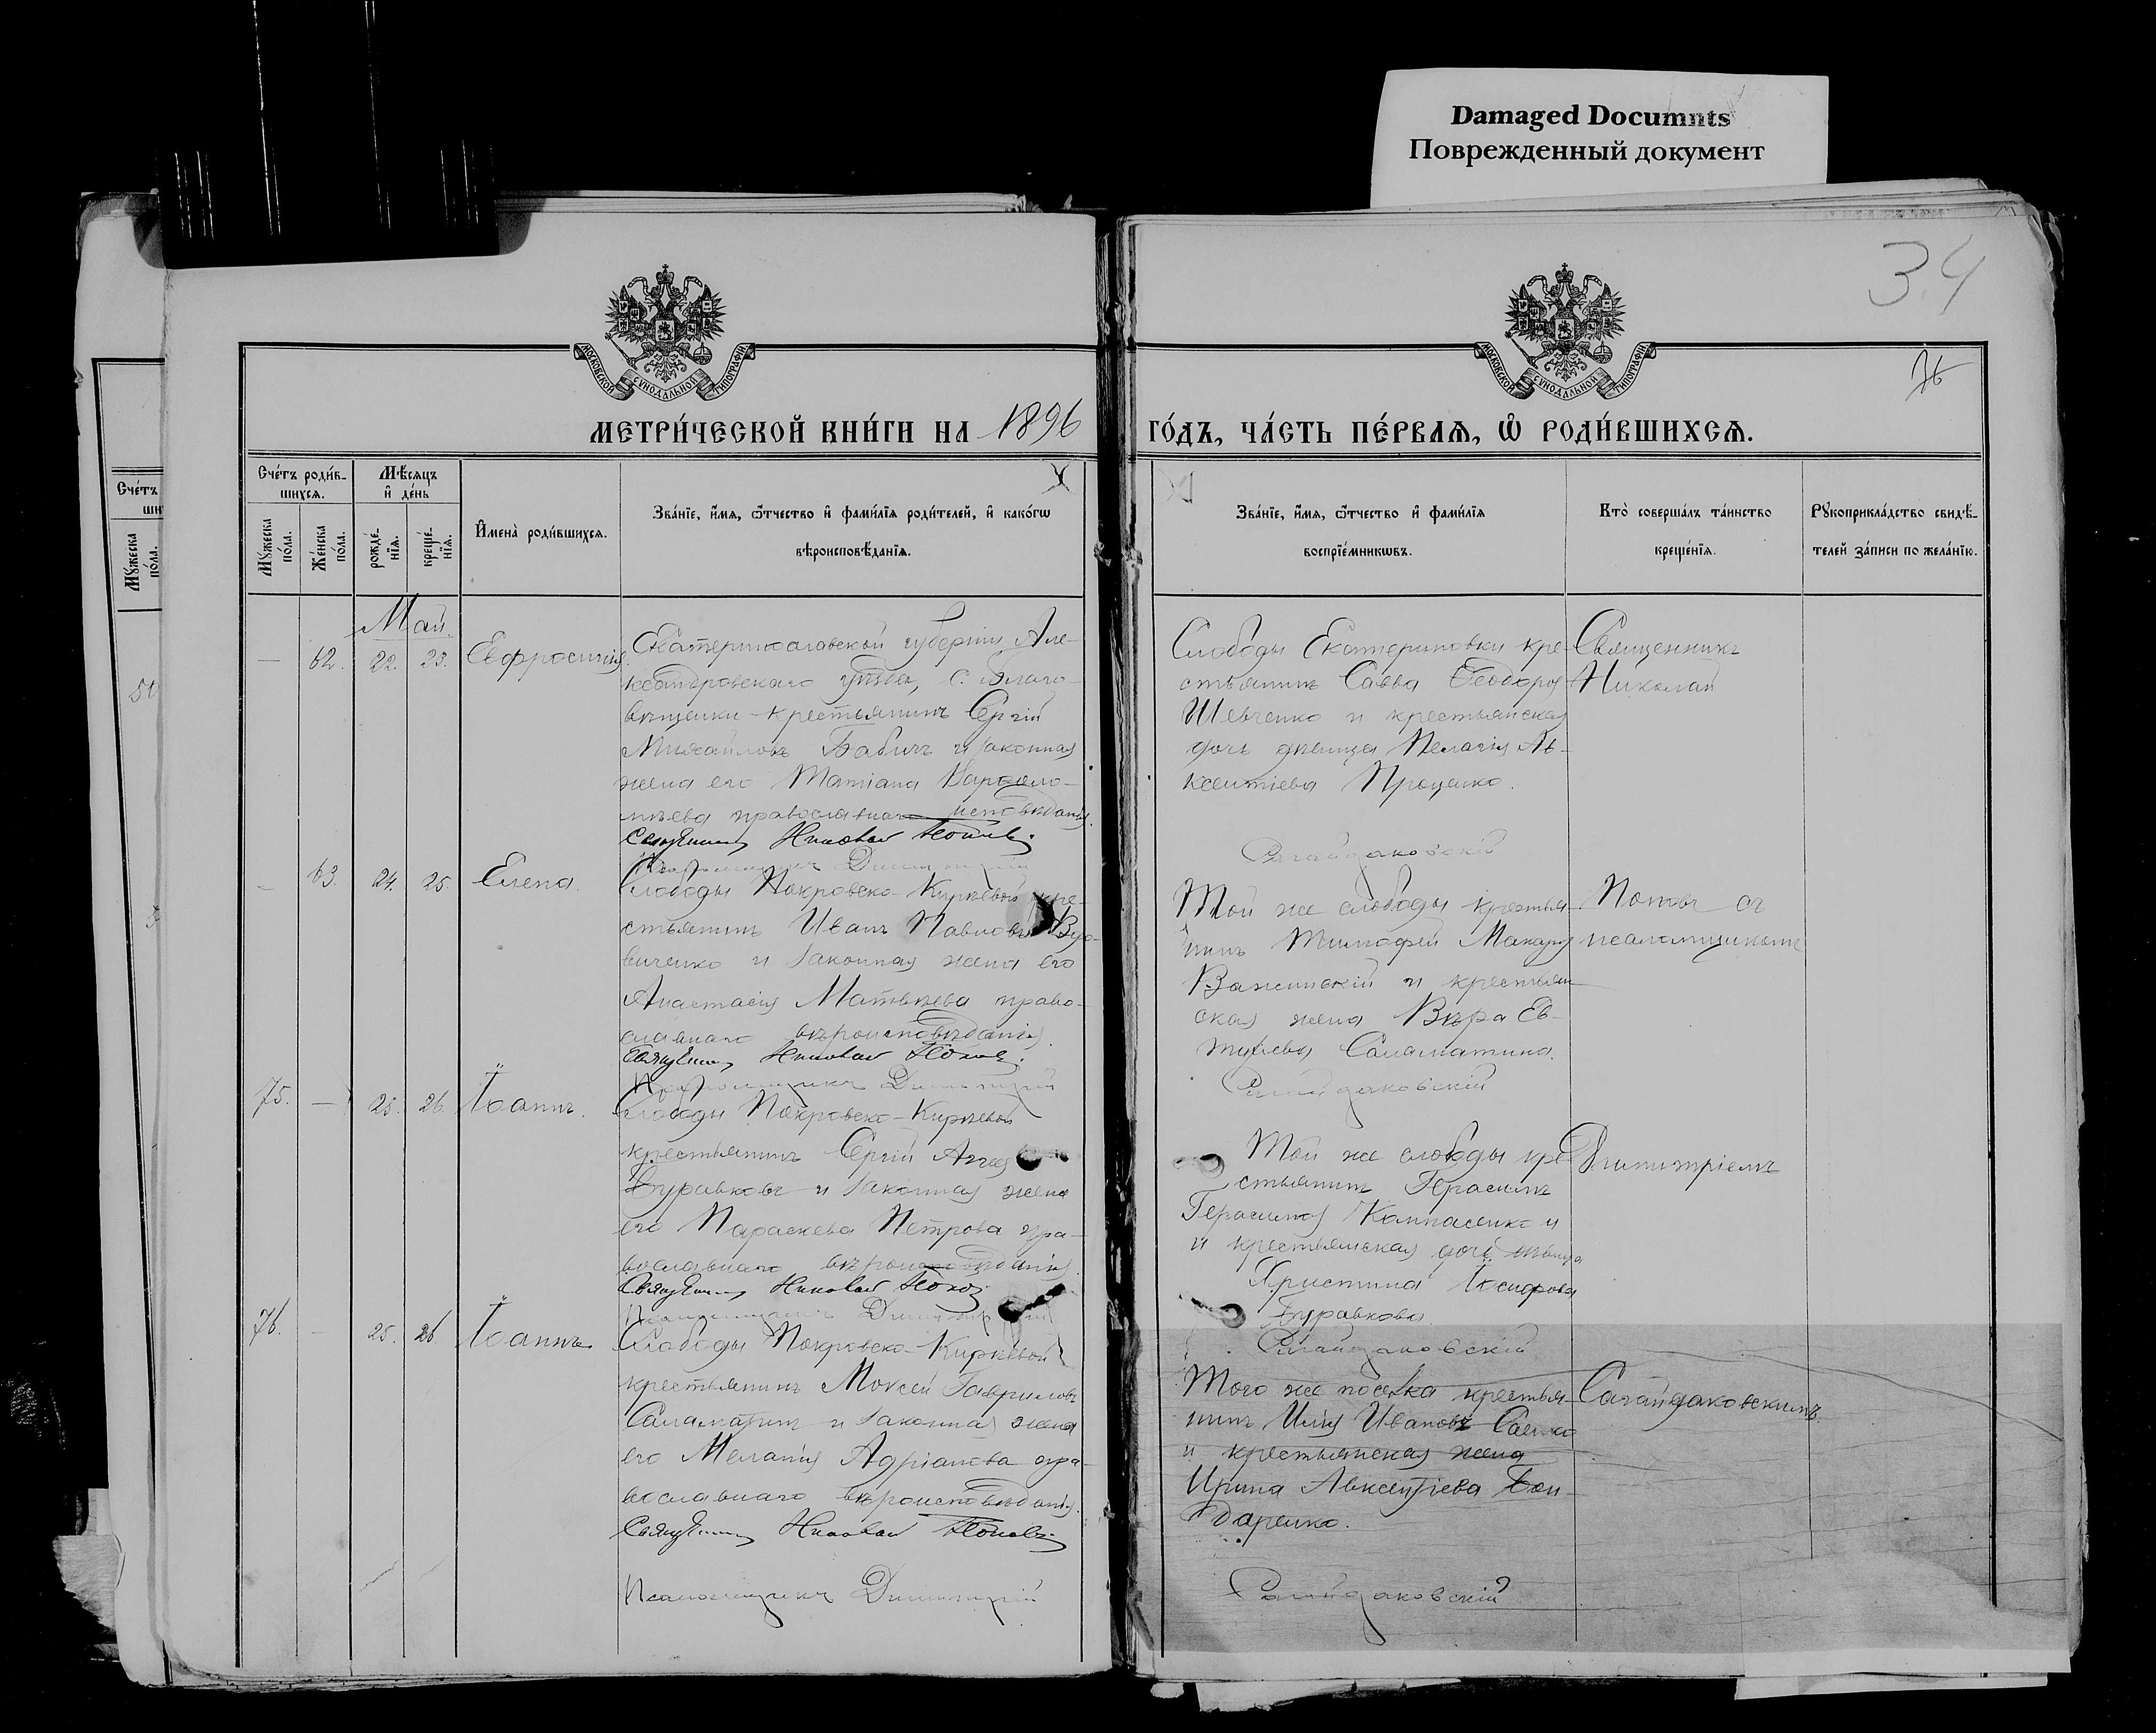 Damaged Documnts
Поврежденный документ
34
76
МОСКОВСКОЙ СѴНОДАЛЬНОЙ ТИПОГРАФІИ
МОСКОВСКОЙ СѴНОДАЛЬНОЙ ТИПОГРАФІИ
МЕТРИ́ЧЕСКОЙ КНИ́ГИ НА 1896
ГО́ДЪ, ЧА́СТЬ ПЕ́РВАЯ, Ѡ РОДИ́ВШИХСЯ.
Счётъ роди́в-
шихся.
Мѣ́сяцъ
и҆ де́нь
Мꙋ́жеска по́ла.
Же́нска по́ла.
рожде́-
нїѧ.
креще́-
нїѧ.
И҆мена̀ роди́вшихся.
Зва́нїе, и҆́мѧ, ѻ҆́тчество и҆ фами́лїѧ роди́телей, и҆ како́гѡ
вѣроисповѣ́данїѧ.
Зва́нїе, и҆́мѧ, ѻ҆́тчество и҆ фами́лїѧ
воспрїе́мникѡвъ.
Кто̀ соверша́лъ та́инство
креще́нїѧ.
Рꙋкоприкла́дство свидѣ́-
телей за́писи по жела́нїю.
Май.
— 62. 22. 23. Евфросинія.
Екатеринославской губерніи Але-
ксандровскаго уѣзда, с. Благо-
вѣщенки крестьянинъ Сергій
Михаиловъ Бабичъ и законная
жена его Татіана Варѳоло-
мѣева православнаго исповѣданія.
Священникъ Николай
Псаломщикъ Димитрій
Слободы Екатериновки кре-
стьянинъ Савва Ѳеодоровъ
Шевченко и крестьянская
дочь дѣвица Пелагія Ав-
ксентіева Проценко.
Сагайдаковскій
Священникъ
Николай
— 63. 24. 25. Елена.
Слободы Покровско-Кирѣевой кре-
стьянинъ Иванъ Павловъ
виченко и законная жена его
Анастасія Матвѣева право-
славнаго вѣроисповѣданія.
Священникъ Николай
Псаломщикъ Димитрій
Той же слободы крестья-
нинъ Тимофей Макаровъ
и крестьян-
ская жена Вѣра Ев-
Саламатина.
Сагайдаковскій
Поповъ съ
псаломщикомъ
75. — 25. 26. Іоаннъ.
Слободы Покровско-Кирѣевой
крестьянинъ Сергій
Буравковъ и законная жена
его Параскева Петрова пра-
вославнаго вѣроисповѣданія.
Священникъ Николай
Псаломщикъ Димитрій
Той же слободы кре-
стьянинъ Герасимъ
Герасимовъ и
и крестьянская дочь дѣвица
Христина Іосифова
Буравкова.
Сагайдаковскій
Димитріемъ
76. — 25. 26. Іоаннъ
Слободы Покровско-Кирѣевой
крестьянинъ Моѵсей Гавриловъ
Саламатинъ и законная жена
его Меланія Адріанова пра-
вославнаго вѣроисповѣданія.
Священникъ Николай Поповъ
Псаломщикъ Димитрій
Того же поселка крестья-
нинъ Илія Ивановъ Саенко
и крестьянская жена
Ирина Авксентіева Бон-
даренко.
Сагайдаковскій
Сагайдаковскимъ.